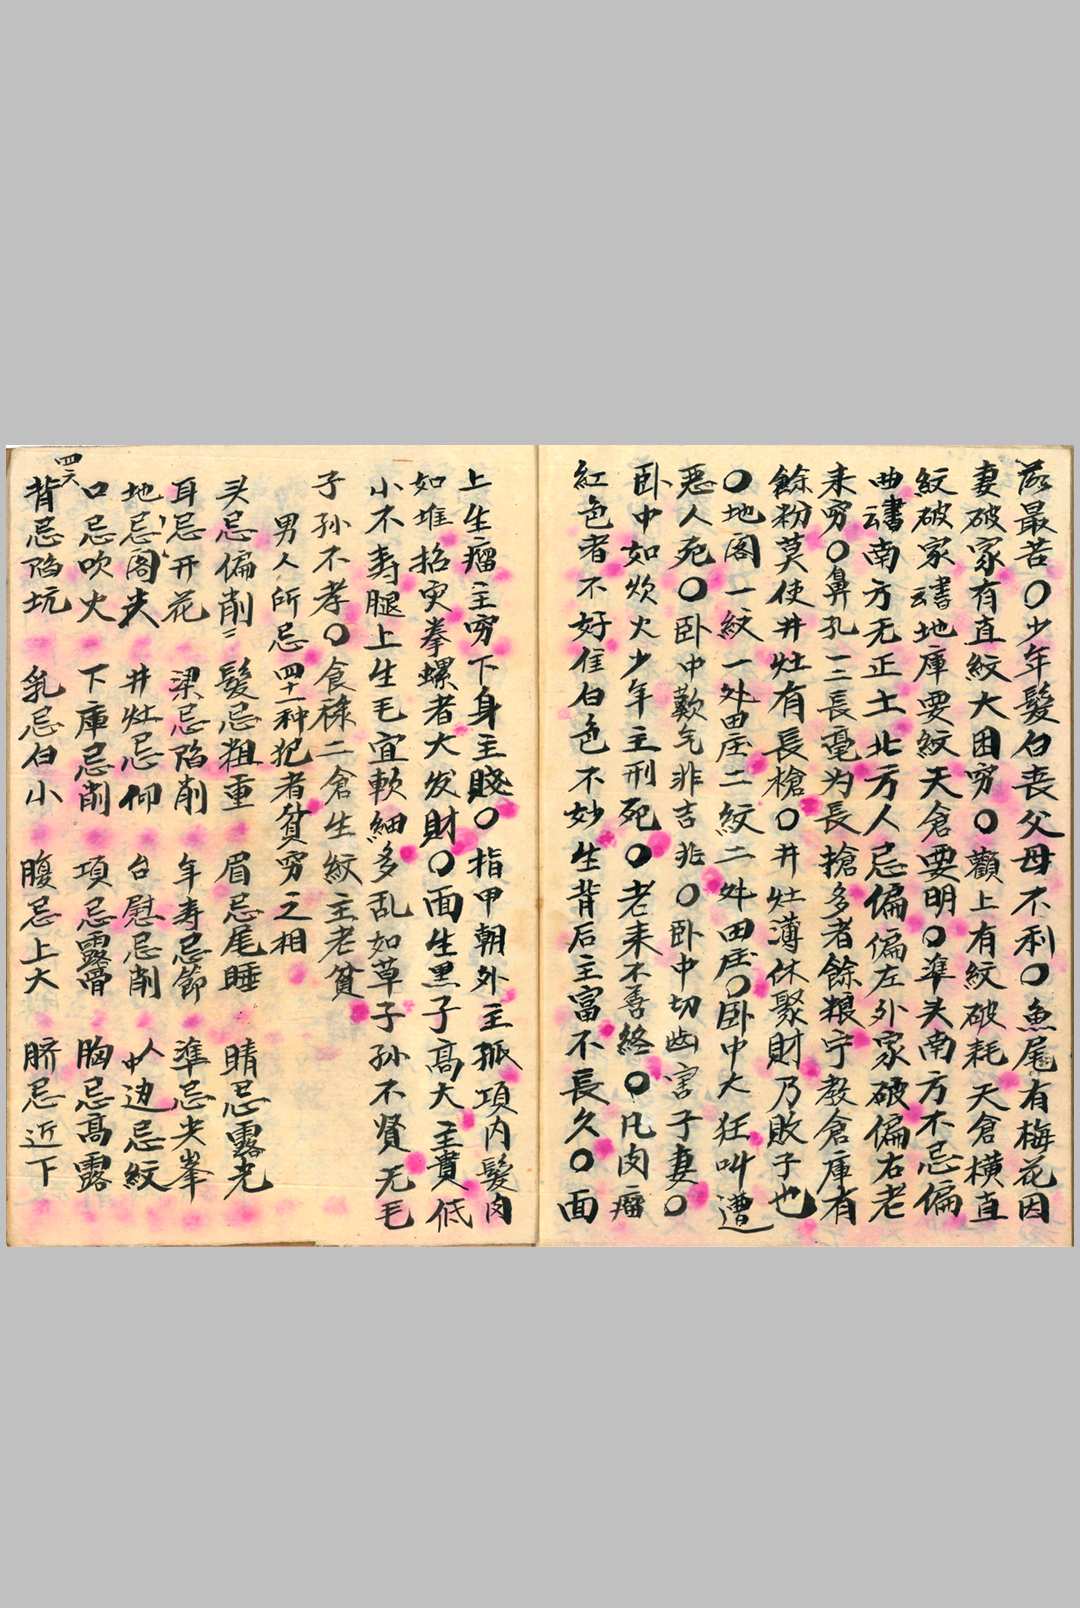 最苦〇少年髮白丧父母不利〇魚尾有梅花因
妻破家有直紋大困穷〇顴上有紋破耗天倉横直
紋破家書地庫要紋天倉要明〇準头南方不忌偏
曲書南方无正土北方人忌偏偏左外家破偏右老
来穷〇鼻孔一二長毫为長搶多者餘粮宁教倉庫有
餘粉莫使井灶有長槍〇井灶薄休聚財乃敗子也
〇地阁一紋一处田庄二紋二处田庄〇卧中大狂叫遭
恶人死〇卧中歎气非吉兆〇卧中切齿害子妻〇
卧中如炊火少年主刑死〇老来不善終〇凡肉瘤
紅色者不好佳白色不妙生背后主富不長久〇面
上生瘤主穷下身主賤〇指甲朝外主孤項内髮肉
如堆拳螺者大发財〇面生黑子高大主貴低
小不寿腿上生毛宜軟細多乱如草子孙不賢无毛
子孙不孝〇食禄二倉生紋主老貧
男人所忌四十一种犯者貧穷之相
头忌偏削 髮忌粗重 眉忌尾垂 睛忌露光
耳忌开花 梁忌陷削 年寿忌節 準忌尖峯
地阁忌尖 井灶忌仰 台慰忌削 人中边忌紋
口忌吹火 下庫忌削 項忌露骨 胸忌高露
四六
背忌陷坑 乳忌白小 腹忌上大 脐忌近下